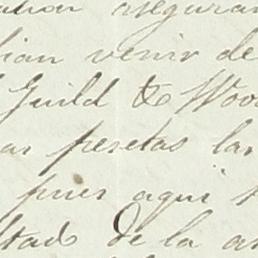 asegura
bian venir de
Guild & Woo
pesetas la
pues aqui
ltado de la a